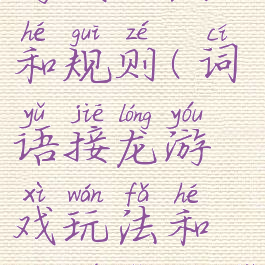 hé guī zé cí
和规则(词
yǔ jiē lóng yóu
语接龙游
xì wán fǎ hé
戏玩法和